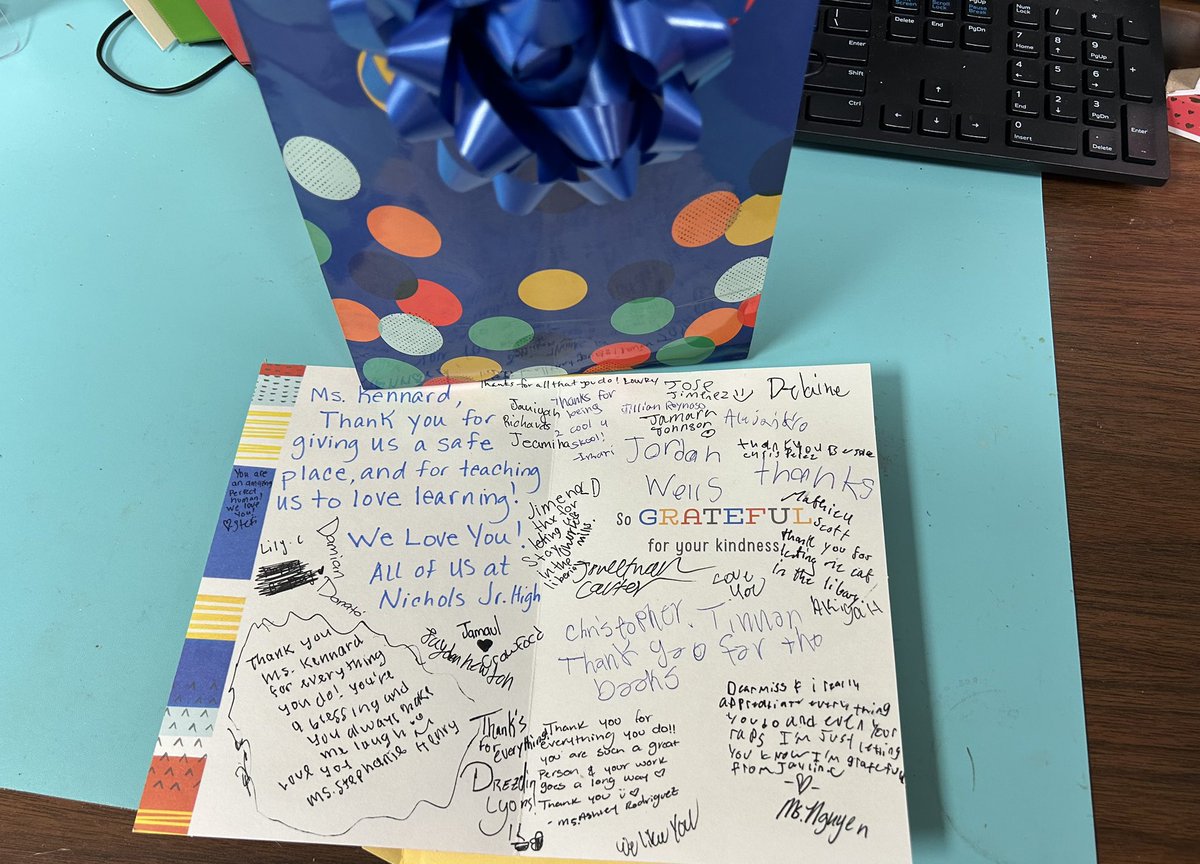 Ms. Kennard,
Thank you for
giving us a safe
place, and for teaching
us to love learning!
We Love You!
All of us at
Nichols Jr. High
You are
an amazing
perfect
human!
we love
you!
Lily. C
Damian
Donato
Thank you
Ms. Kennard
for everything
you do! you're
a blessing and
you always make
me laugh
Love you
Ms. Stephanie Henry
Jamaul
Thanks for all that you do! Lowry
Janiyah
Richards
Jecmiha
Thanks for
being
2 cool 4
skool!
-Imari
Jose
Jimenez
Delaine
Jillian Reynoso
Jamarn
Johnson
Alejandro
Jordan
Wells
thank you
Chris Perez
thanks
Mathieu
Scott
Jimena D
thx for
letting me
So GRATEFUL
for your kindness
thank you for
letting me eat
in the library.
Akiya H
Love
You
Carter
Christopher. Tinnan
Thank yoo for the
books
Thank's
for
Everything!
Drezdin
Lyons!
Thank you for
everything you do!!
you are such a great
person & your work
goes a long way ♡
Thank you
- Ms. Ashley Rodriguez
we like you!
Dear miss K i really
appreciate every thing
you do and even your
raps I'm just letting
you know I'm grateful
from Jayline
Ms. Nguyen
Delete
End
PgDn
Scroll
Lock
PgUp
Pause
Break
Num
Lock
/
*
-
7
Home
8
9
PgUp
+
Enter
4
5
6
Shift
1
End
2
3
PgDn
Enter
Ctrl
0
Insert
.
Delete